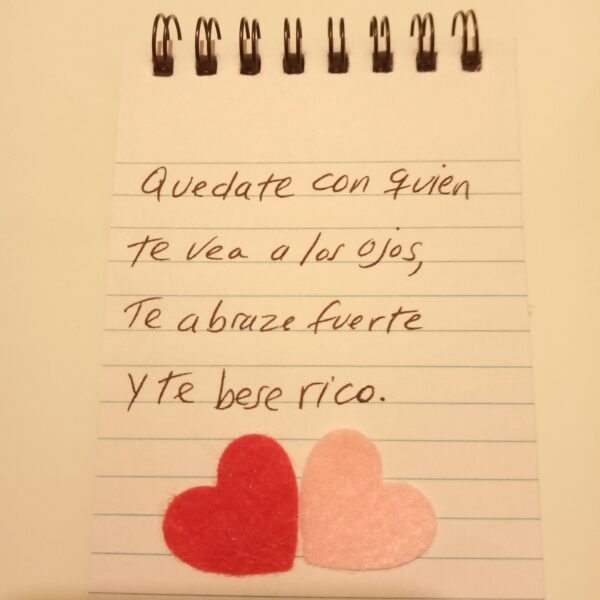 Quedate con quien
te vea a los ojos,
Te abraze fuerte
y te bese rico.